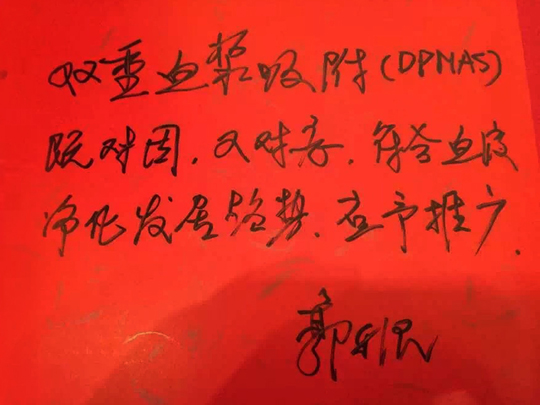 双重血浆吸附(DPMAS)
既对因,又对症,符合血液
净化发展趋势,应予推广.
郭利民